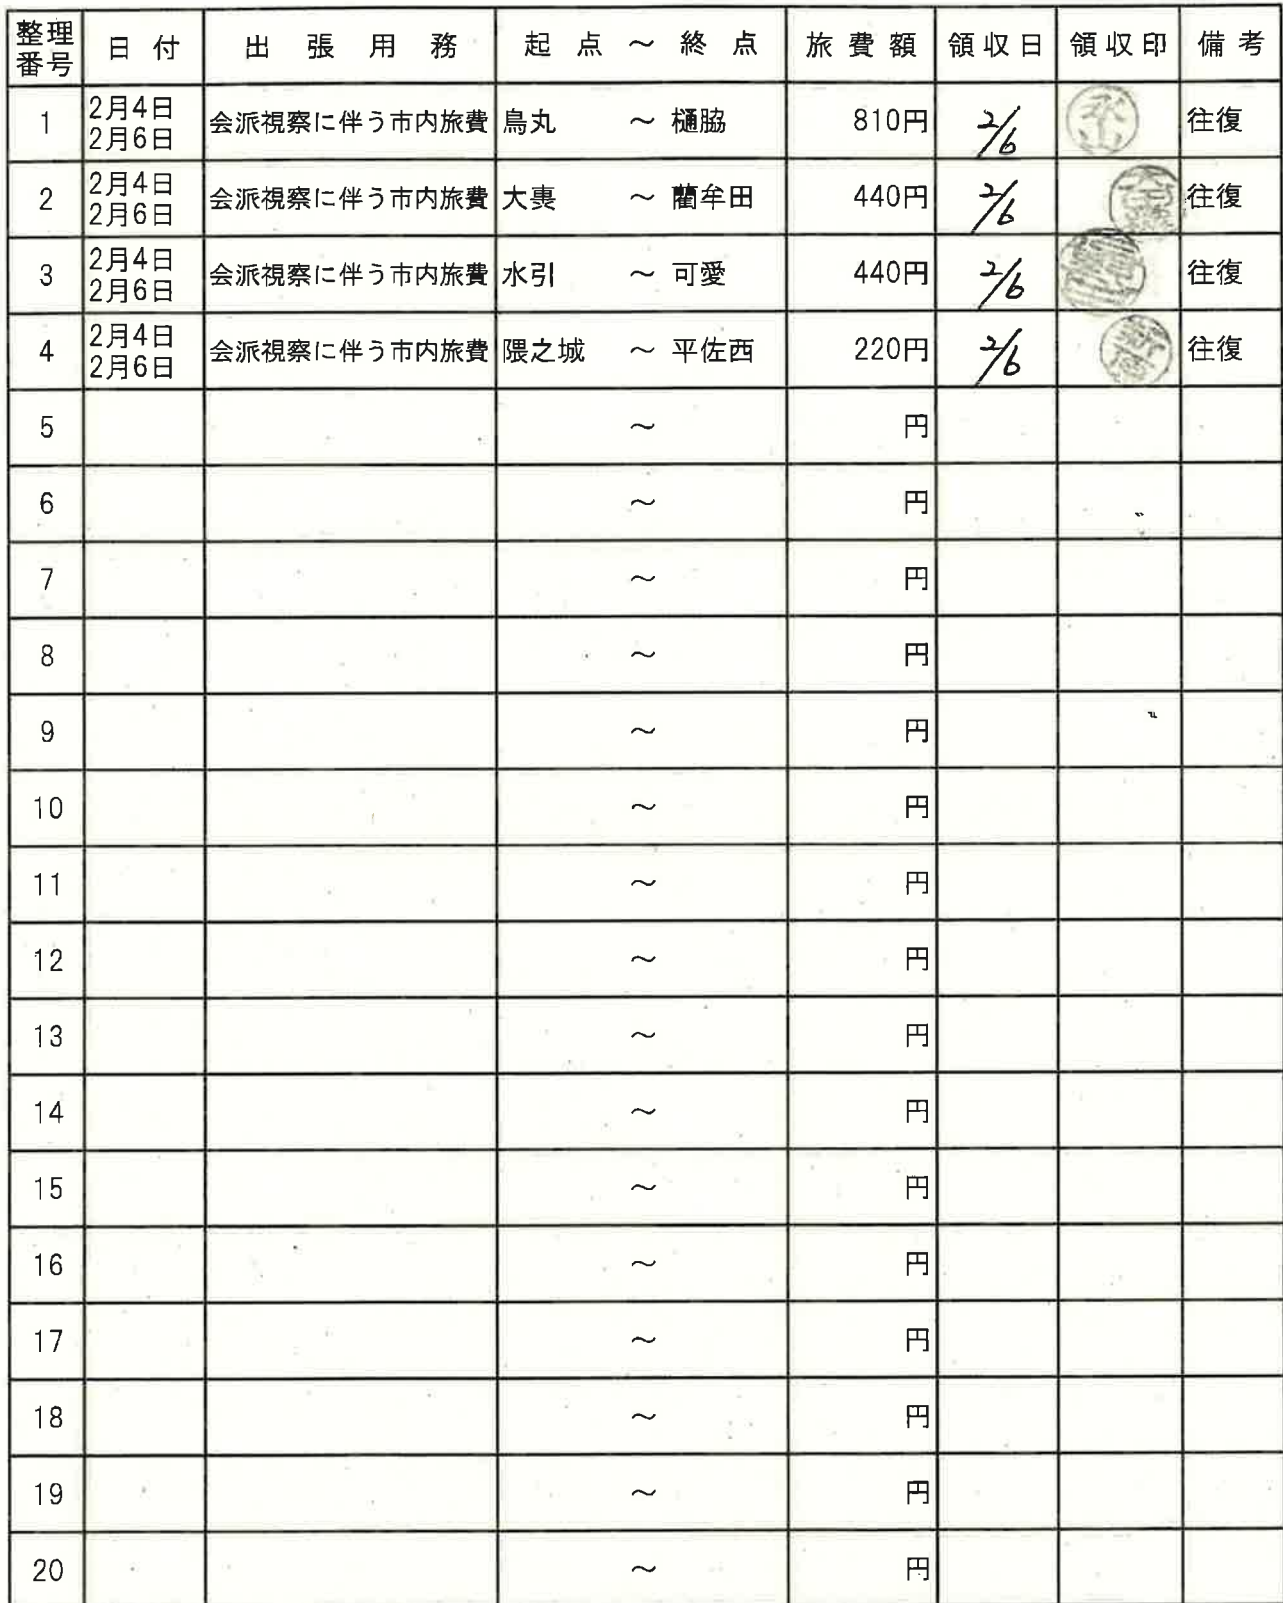 整理番号 日付 出張用務 起点～終点 旅費額 領収日 領収印 備考
1 2月4日 2月6日 会派視察に伴う市内旅費 鳥丸 ～ 樋脇 810円 2/6 往復
2 2月4日 2月6日 会派視察に伴う市内旅費 大 ～ 藺牟田 440円 2/6 往復
3 2月4日 2月6日 会派視察に伴う市内旅費 水引 ～ 可愛 440円 2/6 往復
4 2月4日 2月6日 会派視察に伴う市内旅費 隈之城 ～ 平佐西 220円 2/6 往復
5 ～ 円
6 ～ 円
7 ～ 円
8 ～ 円
9 ～ 円
10 ～ 円
11 ～ 円
12 ～ 円
13 ～ 円
14 ～ 円
15 ～ 円
16 ～ 円
17 ～ 円
18 ～ 円
19 ～ 円
20 ～ 円